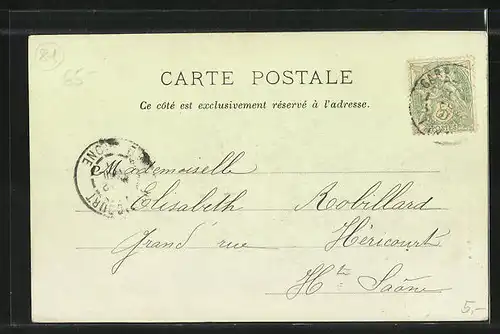 81
65-
CARTE POSTALE
Ce côté est exclusivement réservé à l'adresse.
5
Mademoiselle
Elisabeth Robillard
Grand rue Héricourt
Hte Saône
5,-